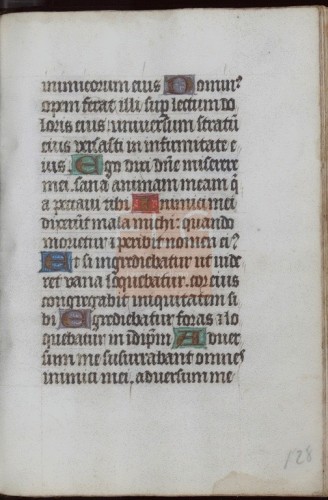 inimicorum eius Domin⁹
opem ferat illi sup lectum do
loris eius : universum stratū
eius versasti in infirmitate e
ius. Ego dixi dn̄e miserere
mei. sana animam meam q̄
a peccavi tibi Inimici mei
dixerūt mala michi : quando
morietur ⁊ peribit nomen ei⁹
Et si ingrediebatur ut vide
ret vana loquebatur. cor eius
congregabit iniquitatem si
bi Egrediebatur foras ⁊ lo
quebatur in idip̄m Adver
sum me susurrabant omnes
inimici mei. adversum me
128